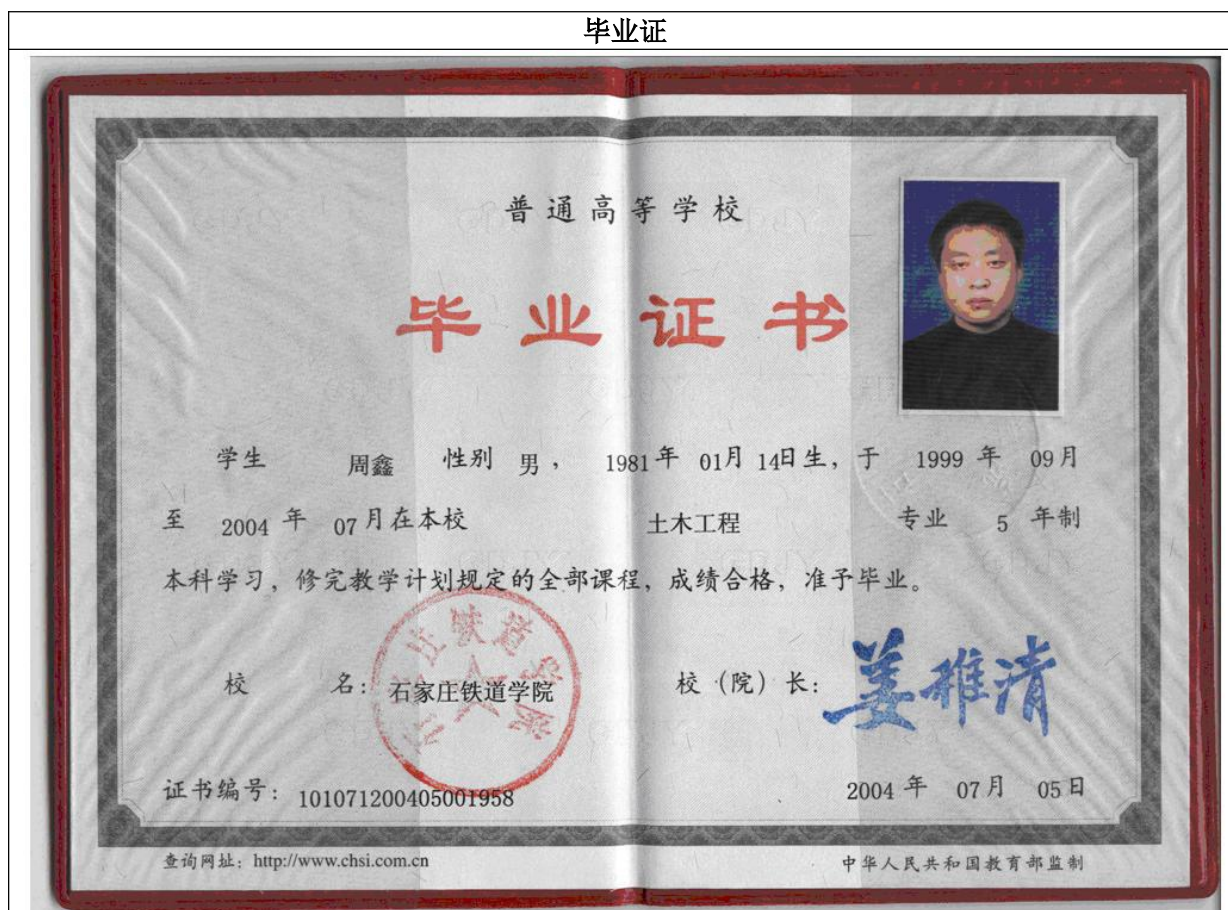 毕业证
普通高等学校
毕业证书
学生 周鑫 性别 男， 1981年 01月 14日生，于 1999 年 09月
至 2004 年 07月在本校 土木工程 专业 5 年制
本科学习，修完教学计划规定的全部课程，成绩合格，准予毕业。
校 名：石家庄铁道学院 校（院）长：姜雅清
证书编号：101071200405001958 2004 年 07月 05日
查询网址：http://www.chsi.com.cn 中华人民共和国教育部监制